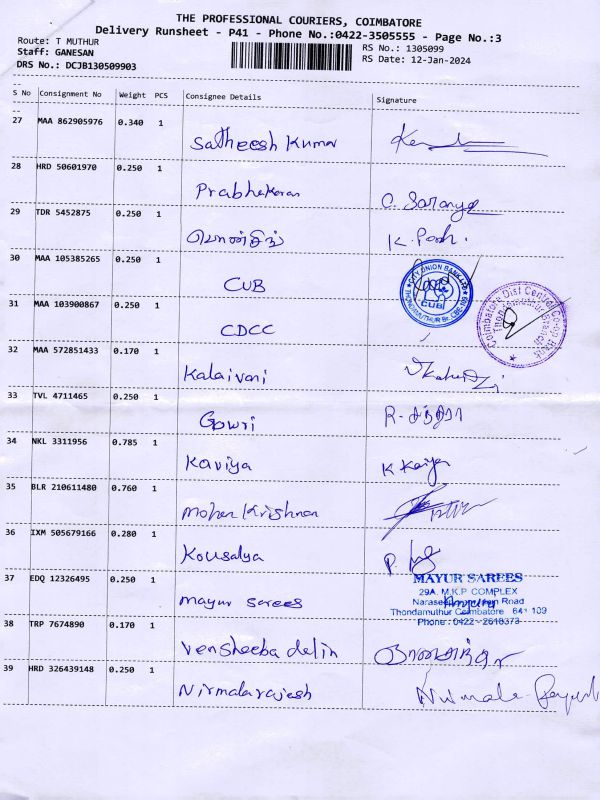 THE PROFESSIONAL COURIERS, COIMBATORE
Delivery Runsheet - P41 - Phone No.:0422-3505555 - Page No.:3
Route: T MUTHUR
RS No.: 1305099
Staff: GANESAN
RS Date: 12-Jan-2024
DRS No.: DCJB130509903
S No Consignment No Weight PCS Consignee Details Signature
27 MAA 862905976 0.340 1 Satheesh Kumar
28 HRD 50601970 0.250 1 Prabhakaran C. Saranya
29 TDR 5452875 0.250 1 K.
30 MAA 105385265 0.250 1 CUB
CITY UNION BANK LTD
CUB
31 MAA 103900867 0.250 1 CDCC
Coimbatore Dist Central Co-op Bank
32 MAA 572851433 0.170 1 Kalaivani
33 TVL 4711465 0.250 1 Gowri R-
34 NKL 3311956 0.785 1 Kaviya K
35 BLR 210611480 0.760 1 Mohan Krishnan
36 IXM 505679166 0.280 1 Kousalya P.
37 EDQ 12326495 0.250 1 mayur sarees
MAYUR SAREES
29A. M.K.P COMPLEX
Thondamuthur Coimbatore 641 109
Phone: 0422-2618373
38 TRP 7674890 0.170 1 Vensheeba delin
39 HRD 326439148 0.250 1 Nirmalarajesh